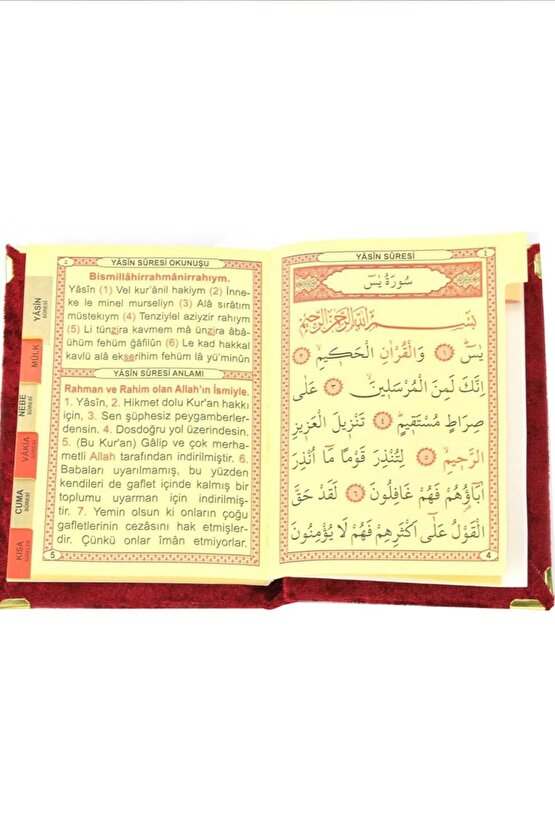 YÂSÎN SÛRESİ OKUNUŞU
Bismillâhirrahmânirrahıym.
Yâsîn (1) Vel kur'ânil hakiym (2) İnne-
ke le minel murseliyn (3) Alâ sırâtım
müstekıym (4) Tenziylel aziyzir rahıym
(5) Li tünzira kavmem mâ ünzira âbâ-
ühüm fehüm gâfilûn (6) Le kad hakkal
kavlü alâ ekserihim fehüm lâ yü'minûn
YÂSÎN SÛRESİ ANLAMI
Rahman ve Rahim olan Allah'ın İsmiyle.
1. Yâsîn, 2. Hikmet dolu Kur'an hakkı
için, 3. Sen şüphesiz peygamberler-
densin. 4. Dosdoğru yol üzerindesin.
5. (Bu Kur'an) Gâlip ve çok merha-
metli Allah tarafından indirilmiştir. 6.
Babaları uyarılmamış, bu yüzden
kendileri de gaflet içinde kalmış bir
toplumu uyarman için indirilmiş-
tir. 7. Yemin olsun ki onların çoğu
gafletlerinin cezasını hak etmişler-
dir. Çünkü onlar îmân etmiyorlar.
5
YÂSÎN
SÛRESİ
MÜLK
NEBE
SÛRESİ
VAKIA
CUMA
SÛRESİ
KISA
YÂSÎN SÛRESİ
٤
سُورَةُ يٰسٓ
بِسْمِ اللّٰهِ الرَّحْمٰنِ الرَّحٖيمِ
يٰسٓ ١ وَالْقُرْاٰنِ الْحَكٖيمِ ٢
اِنَّكَ لَمِنَ الْمُرْسَلٖينَ ٣ عَلٰى
صِرَاطٍ مُسْتَقٖيمٍ ٤ تَنْزٖيلَ الْعَزٖيزِ
الرَّحٖيمِ ٥ لِتُنْذِرَ قَوْمًا مَٓا اُنْذِرَ
اٰبَٓاؤُ۬هُمْ فَهُمْ غَافِلُونَ ٦ لَقَدْ حَقَّ
الْقَوْلُ عَلٰٓى اَكْثَرِهِمْ فَهُمْ لَا يُؤْمِنُونَ
4